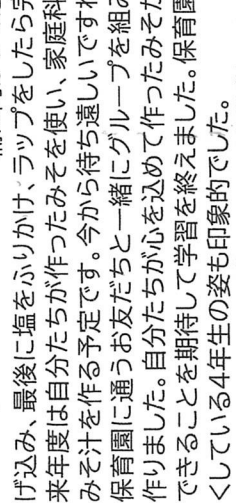 げ込み、最後に塩をふりかけ、ラップをしたら完
来年度は自分たちが作ったみそを使い、家庭科
みそ汁を作る予定です。今から待ち遠しいですね
保育園に通うお友だちと一緒にグループを組み
作りました。自分たちが心を込めて作ったみそが
できることを期待して学習を終えました。保育園
くしている4年生の姿も印象的でした。